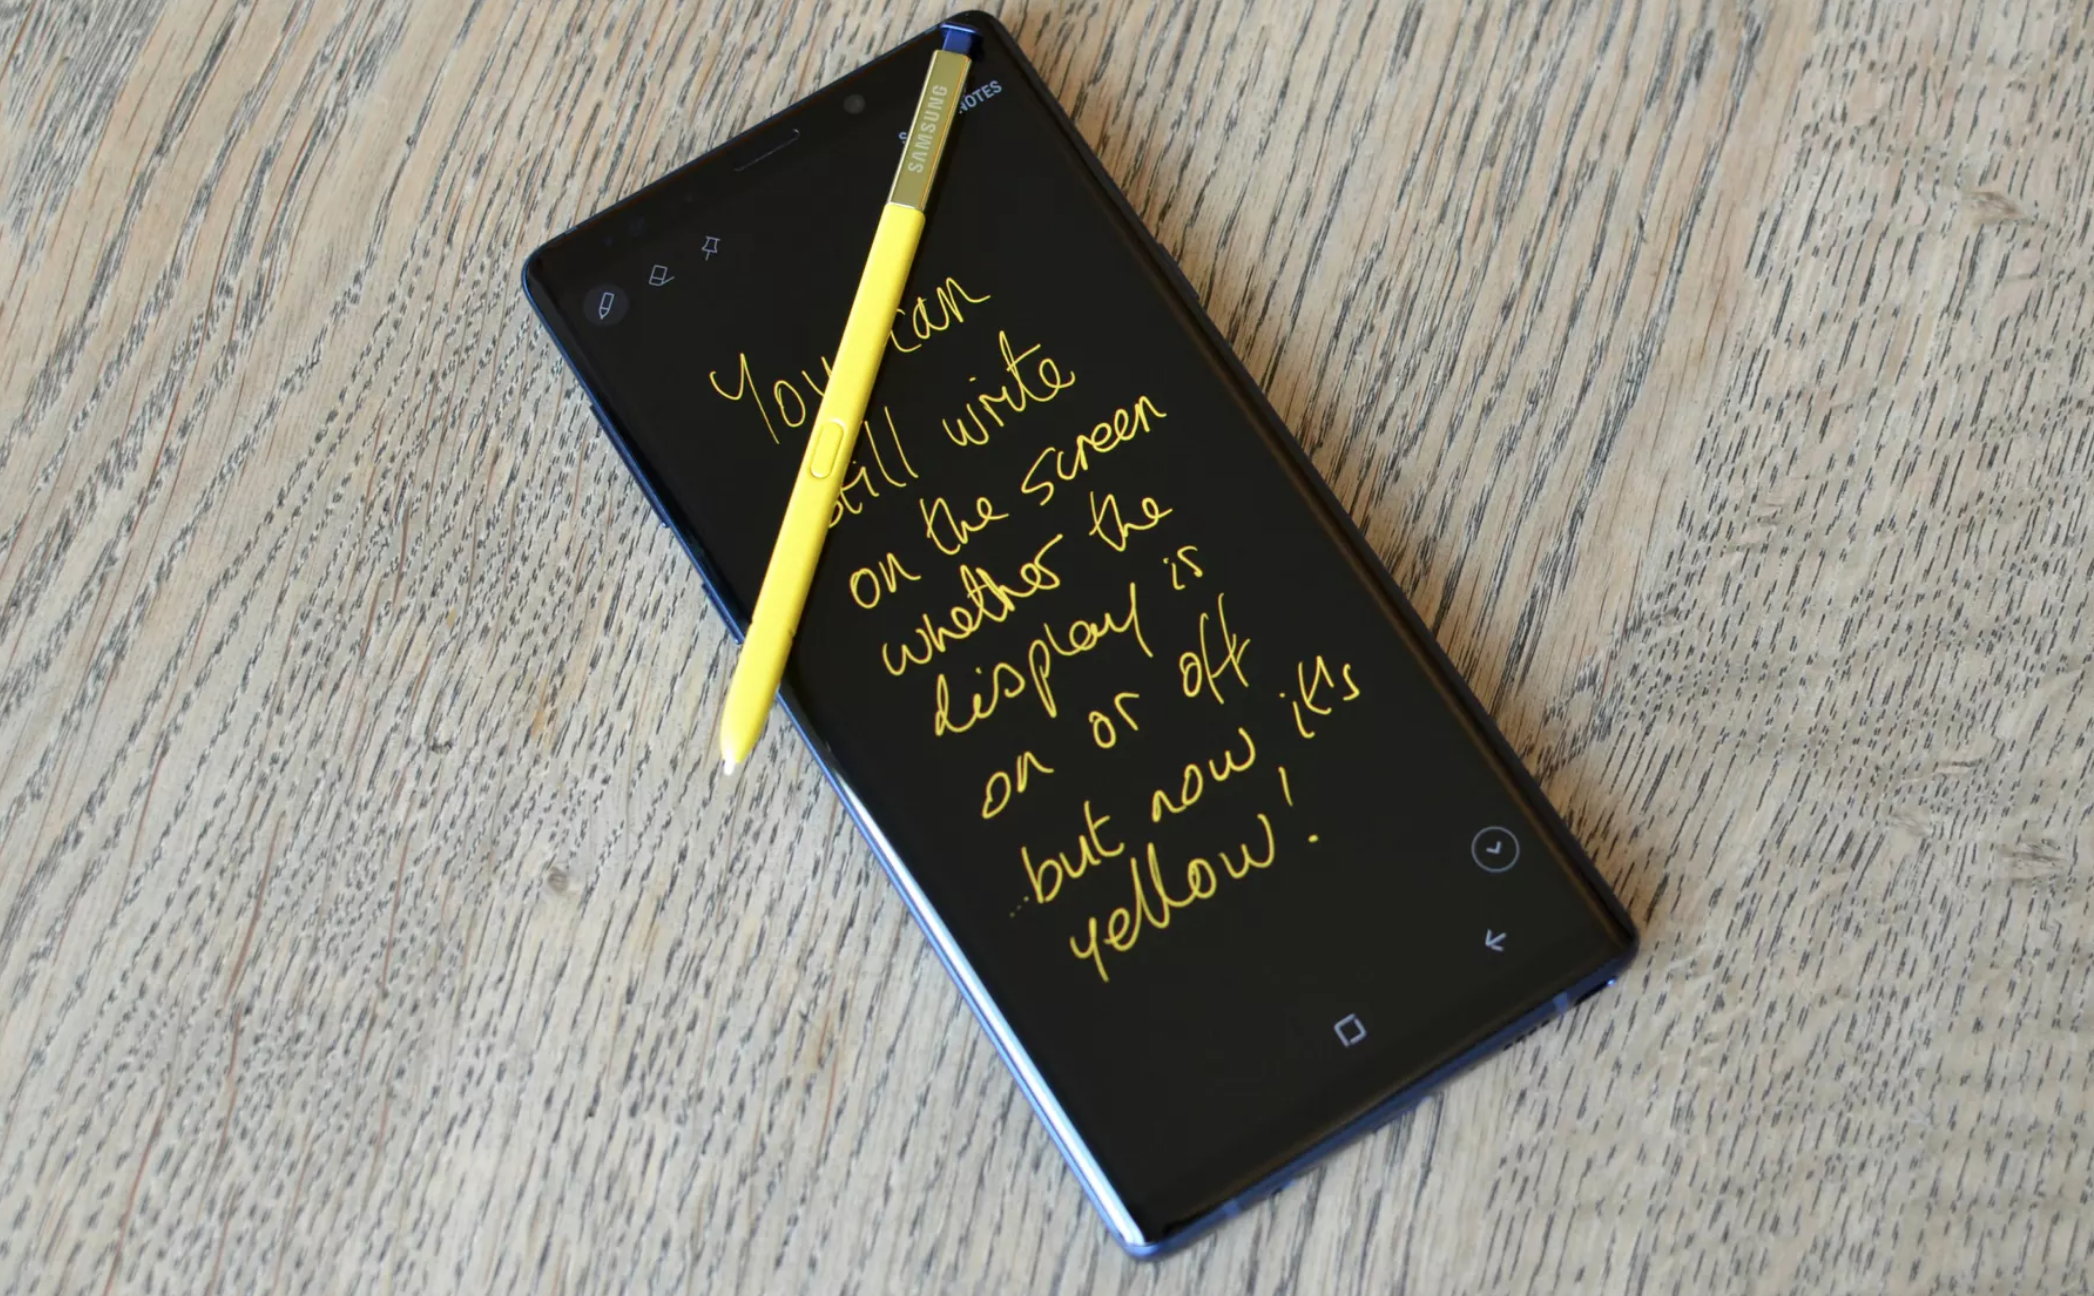 SAMSUNG
NOTES
You can
still write
on the screen
whether the
display is
on or off
...but now it's
yellow!